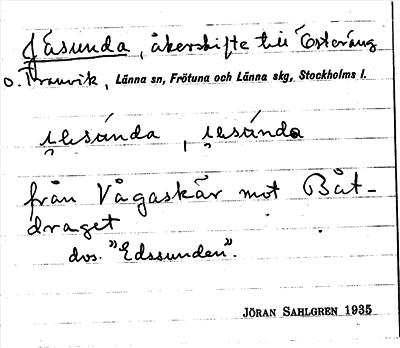 Jäsunda, åkerskifte till Österäng
o. Kranvik, Länna sn, Frötuna och Länna skg, Stockholms l.
från Vågaskär mot Båt-
draget
dvs. "Edssunden".
JÖRAN SAHLGREN 1935